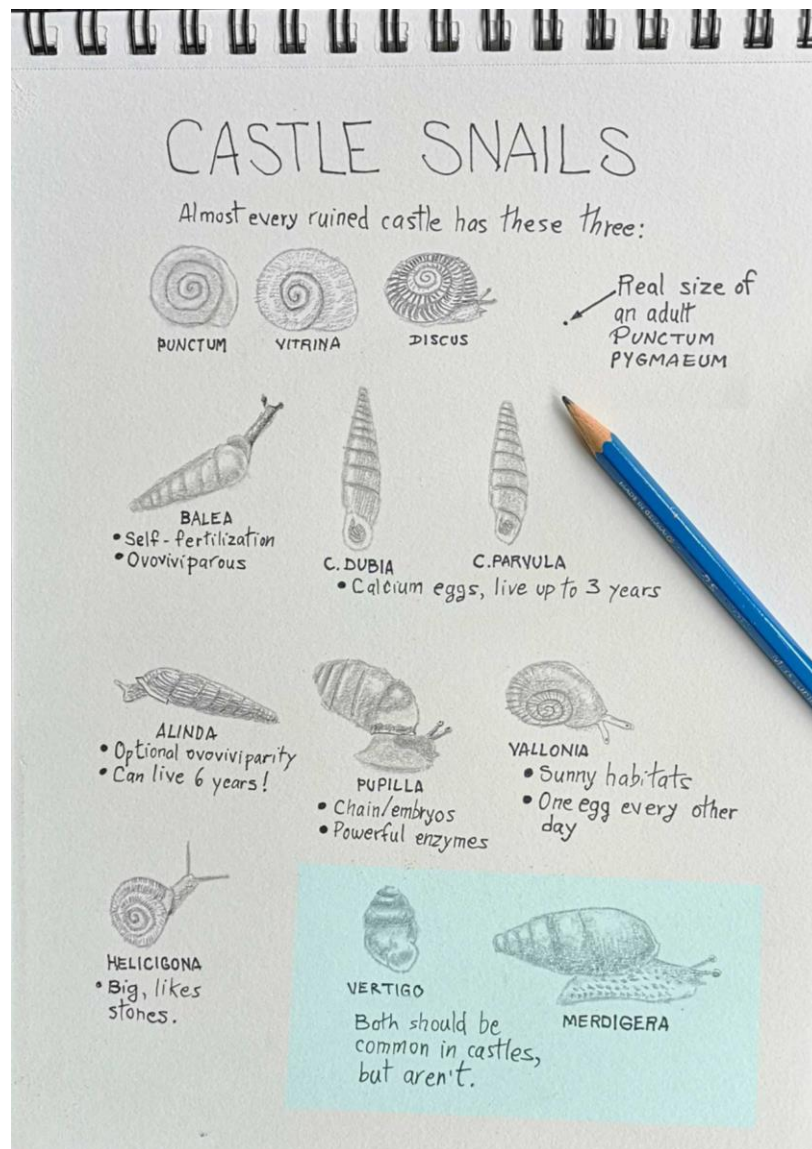 CASTLE SNAILS
Almost every ruined castle has these three:
PUNCTUM
VITRINA
DISCUS
Real size of
an adult
PUNCTUM
PYGMAEUM
BALEA
• Self-fertilization
• Ovoviviparous
C. DUBIA
C. PARVULA
• Calcium eggs, live up to 3 years
ALINDA
• Optional ovoviviparity
• Can live 6 years!
PUPILLA
• Chain/embryos
• Powerful enzymes
VALLONIA
• Sunny habitats
• One egg every other
day
HELICIGONA
• Big, likes
stones.
VERTIGO
MERDIGERA
Both should be
common in castles,
but aren't.